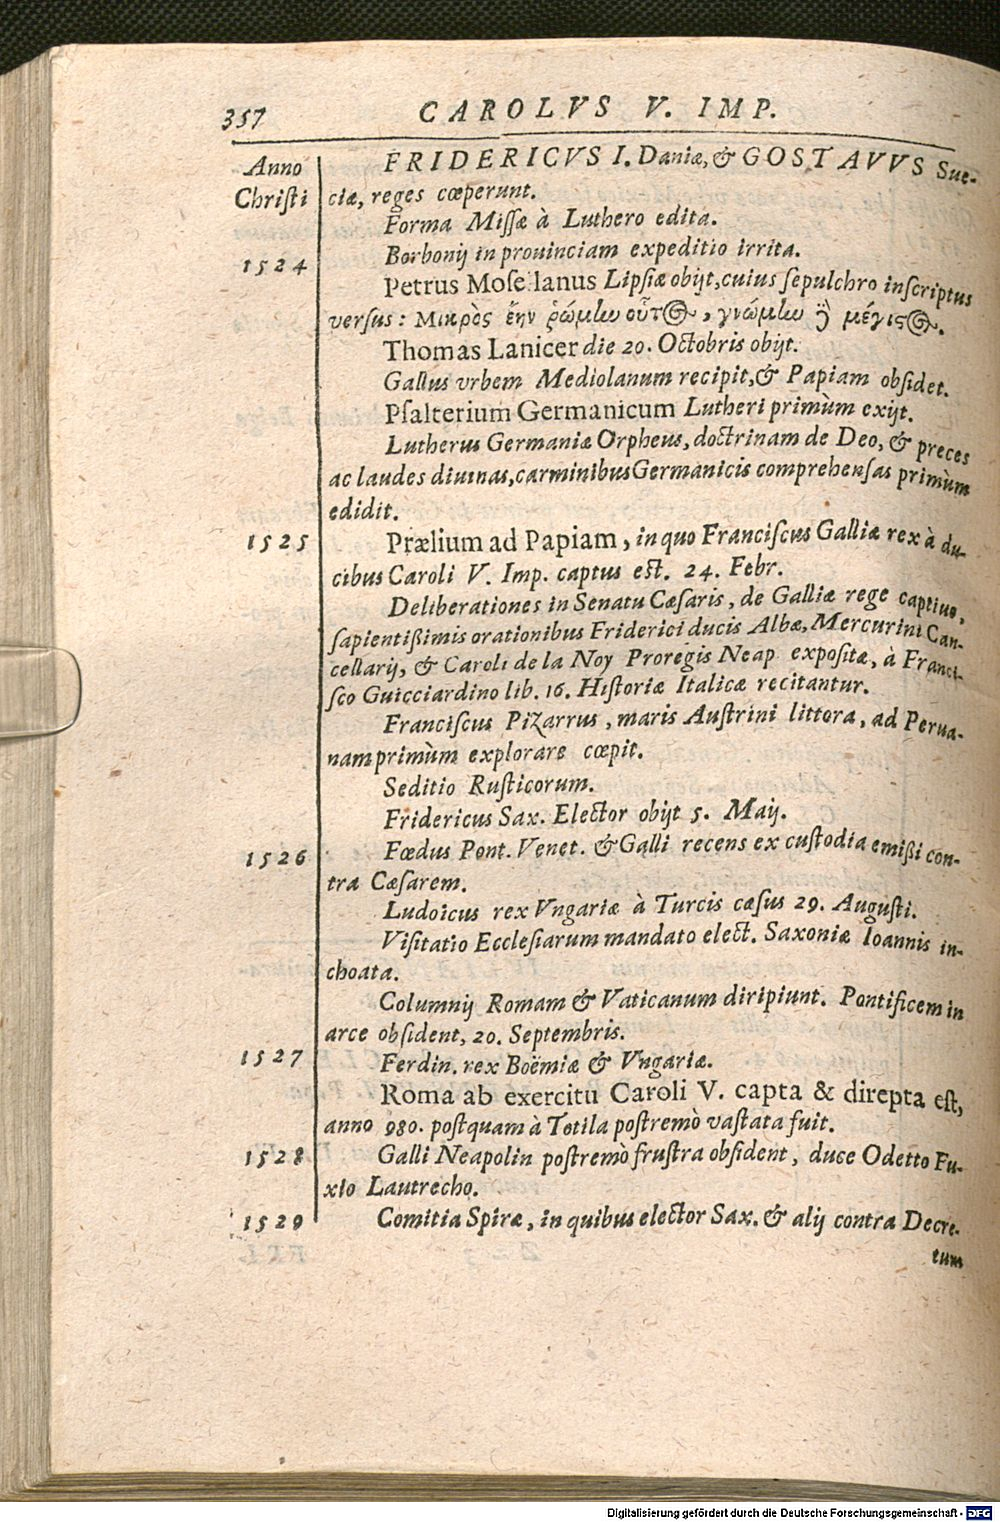 357 CAROLVS V. IMP.
Anno FRIDERICVS I. Daniæ, & GOSTAVVS Sue-
Chriſti ciæ, reges cœperunt.
Forma Miſſæ à Luthero edita.
1524 Borbonij in prouinciam expeditio irrita.
Petrus Moſellanus Lipſiæ obijt, cuius ſepulchro inſcriptus
verſus: Μικρὸς ἔην ῥώμlω οὗτος, γνώμlω ϗ̀ μέγιςος.
Thomas Lanicer die 20. Octobris obijt.
Gallus vrbem Mediolanum recipit, & Papiam obſidet.
Pſalterium Germanicum Lutheri primùm exijt.
Lutherus Germaniæ Orpheus, doctrinam de Deo, & preces
ac laudes diuinas, carminibus Germanicis comprehenſas primùm
edidit.
1525 Prælium ad Papiam, in quo Franciſcus Galliæ rex à du-
cibus Caroli V. Imp. captus eſt. 24. Febr.
Deliberationes in Senatu Cæſaris, de Galliæ rege captiuo,
ſapientißimis orationibus Friderici ducis Albæ, Mercurini Can-
cellarij, & Caroli de la Noy Proregis Neap expoſitæ, à Franci-
ſco Guicciardino lib. 16. Hiſtoriæ Italicæ recitantur.
Franciſcus Pizarrus, maris Auſtrini littora, ad Perua-
nam primùm explorare cœpit.
Seditio Ruſticorum.
Fridericus Sax. Elector obijt 5. Maij.
1526 Fœdus Pont. Venet. & Galli recens ex cuſtodia emißi con-
tra Cæſarem.
Ludoicus rex Vngariæ à Turcis cæſus 29. Auguſti.
Viſitatio Eccleſiarum mandato elect. Saxoniæ Ioannis in-
choata.
Columnij Romam & Vaticanum diripiunt. Pontificem in
arce obſident, 20. Septembris.
1527 Ferdin. rex Boëmiæ & Vngariæ.
Roma ab exercitu Caroli V. capta & direpta eſt,
anno 980. poſtquam à Totila poſtremò vaſtata fuit.
1528 Galli Neapolin poſtremò fruſtra obſident, duce Odetto Fu-
xio Lautrecho.
1529 Comitia Spiræ, in quibus elector Sax. & alij contra Decre-
tum
Digitalisierung gefördert durch die Deutsche Forschungsgemeinschaft - DFG